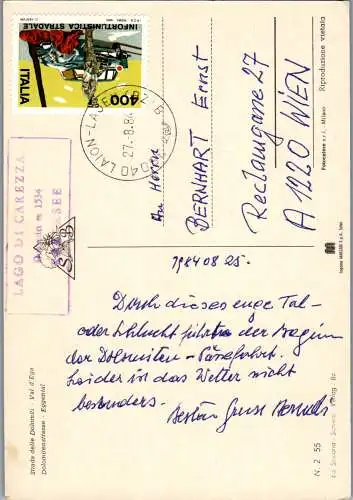 INFORTUNISTICA STRADALE
ITALIA
400
39040 LAION-LAJEN (BZ)
27.-8.84
LAGO DI CAREZZA
m 1534
SEE
An Herrn
BERNHART Ernst
Rectaugane 27
A 1220 WIEN
1984 08 25.
Durch dieses enge Tal-
oder Schlucht führt der Beginn
der Dolomiten-Pässefahrt.
Leider ist das Wetter nicht
besonders.
Besten Gruss
Strada delle Dolomiti - Val d'Ega
Dolomitenstrasse - Eggental
N. 2 55
Riproduzione vietata
Milano